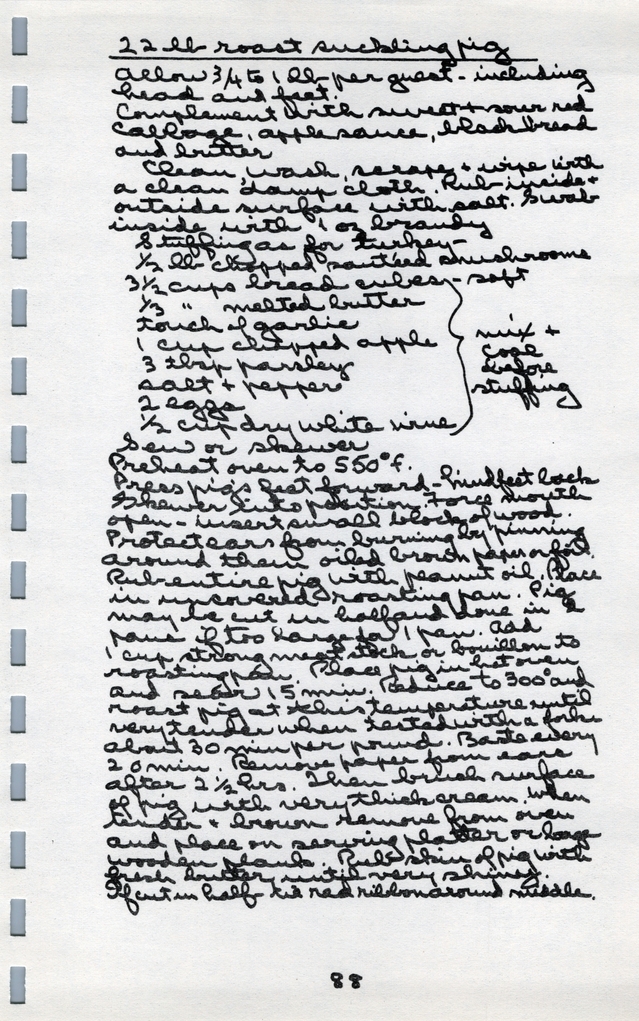 22 lb roast suckling pig
Allow 3/4 to 1 lb per guest - including
head and feet.
Complement with sweet + sour red
cabbage, applesauce, black bread
and butter
Clean, wash, scrape + wipe with
a clean damp cloth. Rub inside +
outside surface with salt. Swab
inside with 1 oz brandy
Stuffing as for turkey -
1/2 lb chopped sautéed mushrooms
3 1/2 cups bread cubes - soft
1/3 " melted butter
touch of garlic
1 cup chopped apple
3 tbsp parsley
salt + pepper
2 eggs
1/2 cup dry white wine
mix +
cool
before
stuffing
Sew or skewer
Preheat oven to 550° f.
Press pigs feet forward - hind feet back
Skewer into position. Force mouth
open - insert small block of wood.
Protect ears from burning by pinning
around them oiled brown paper or foil.
Rub entire pig with peanut oil. Place
in uncovered roasting pan. Pig
may be cut in half and done in 2
pans if too large for 1 pan. Add
1 cup strong meat stock or bouillon to
roasting pan. Place pig in hot oven
and sear 15 min. Reduce to 300° and
roast pig at this temperature until
very tender when tested with a fork -
about 30 min per pound. Baste every
20 min. Remove paper from ears
after 2 1/2 hrs. Then brush surface
of pig with very thick cream. When
tender + brown remove from oven
and place on serving platter or large
wooden plank. Rub skin of pig with
fresh butter until very shiny.
If cut in half - tie red ribbon around middle.
88